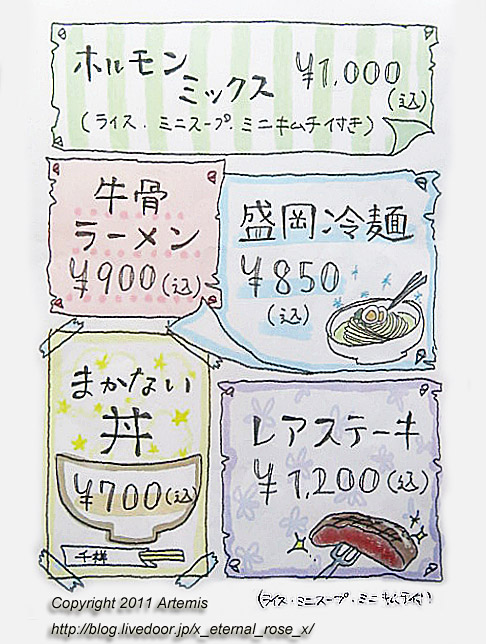 ホルモン
ミックス
¥1,000
(込)
(ライス・ミニスープ・ミニキムチ付き)
牛骨
ラーメン
¥900(込)
盛岡冷麺
¥850
(込)
まかない
丼
¥700(込)
レアステーキ
¥1,200(込)
(ライス・ミニスープ・ミニキムチ付)
Copyright 2011 Artemis
http://blog.livedoor.jp/x_eternal_rose_x/